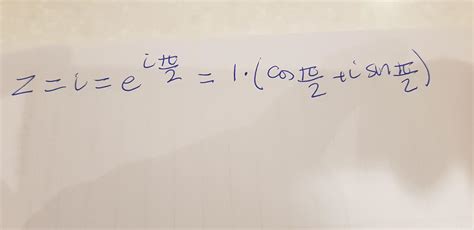 z = i = e^{i π/2} = 1·(cos π/2 + i sin π/2)